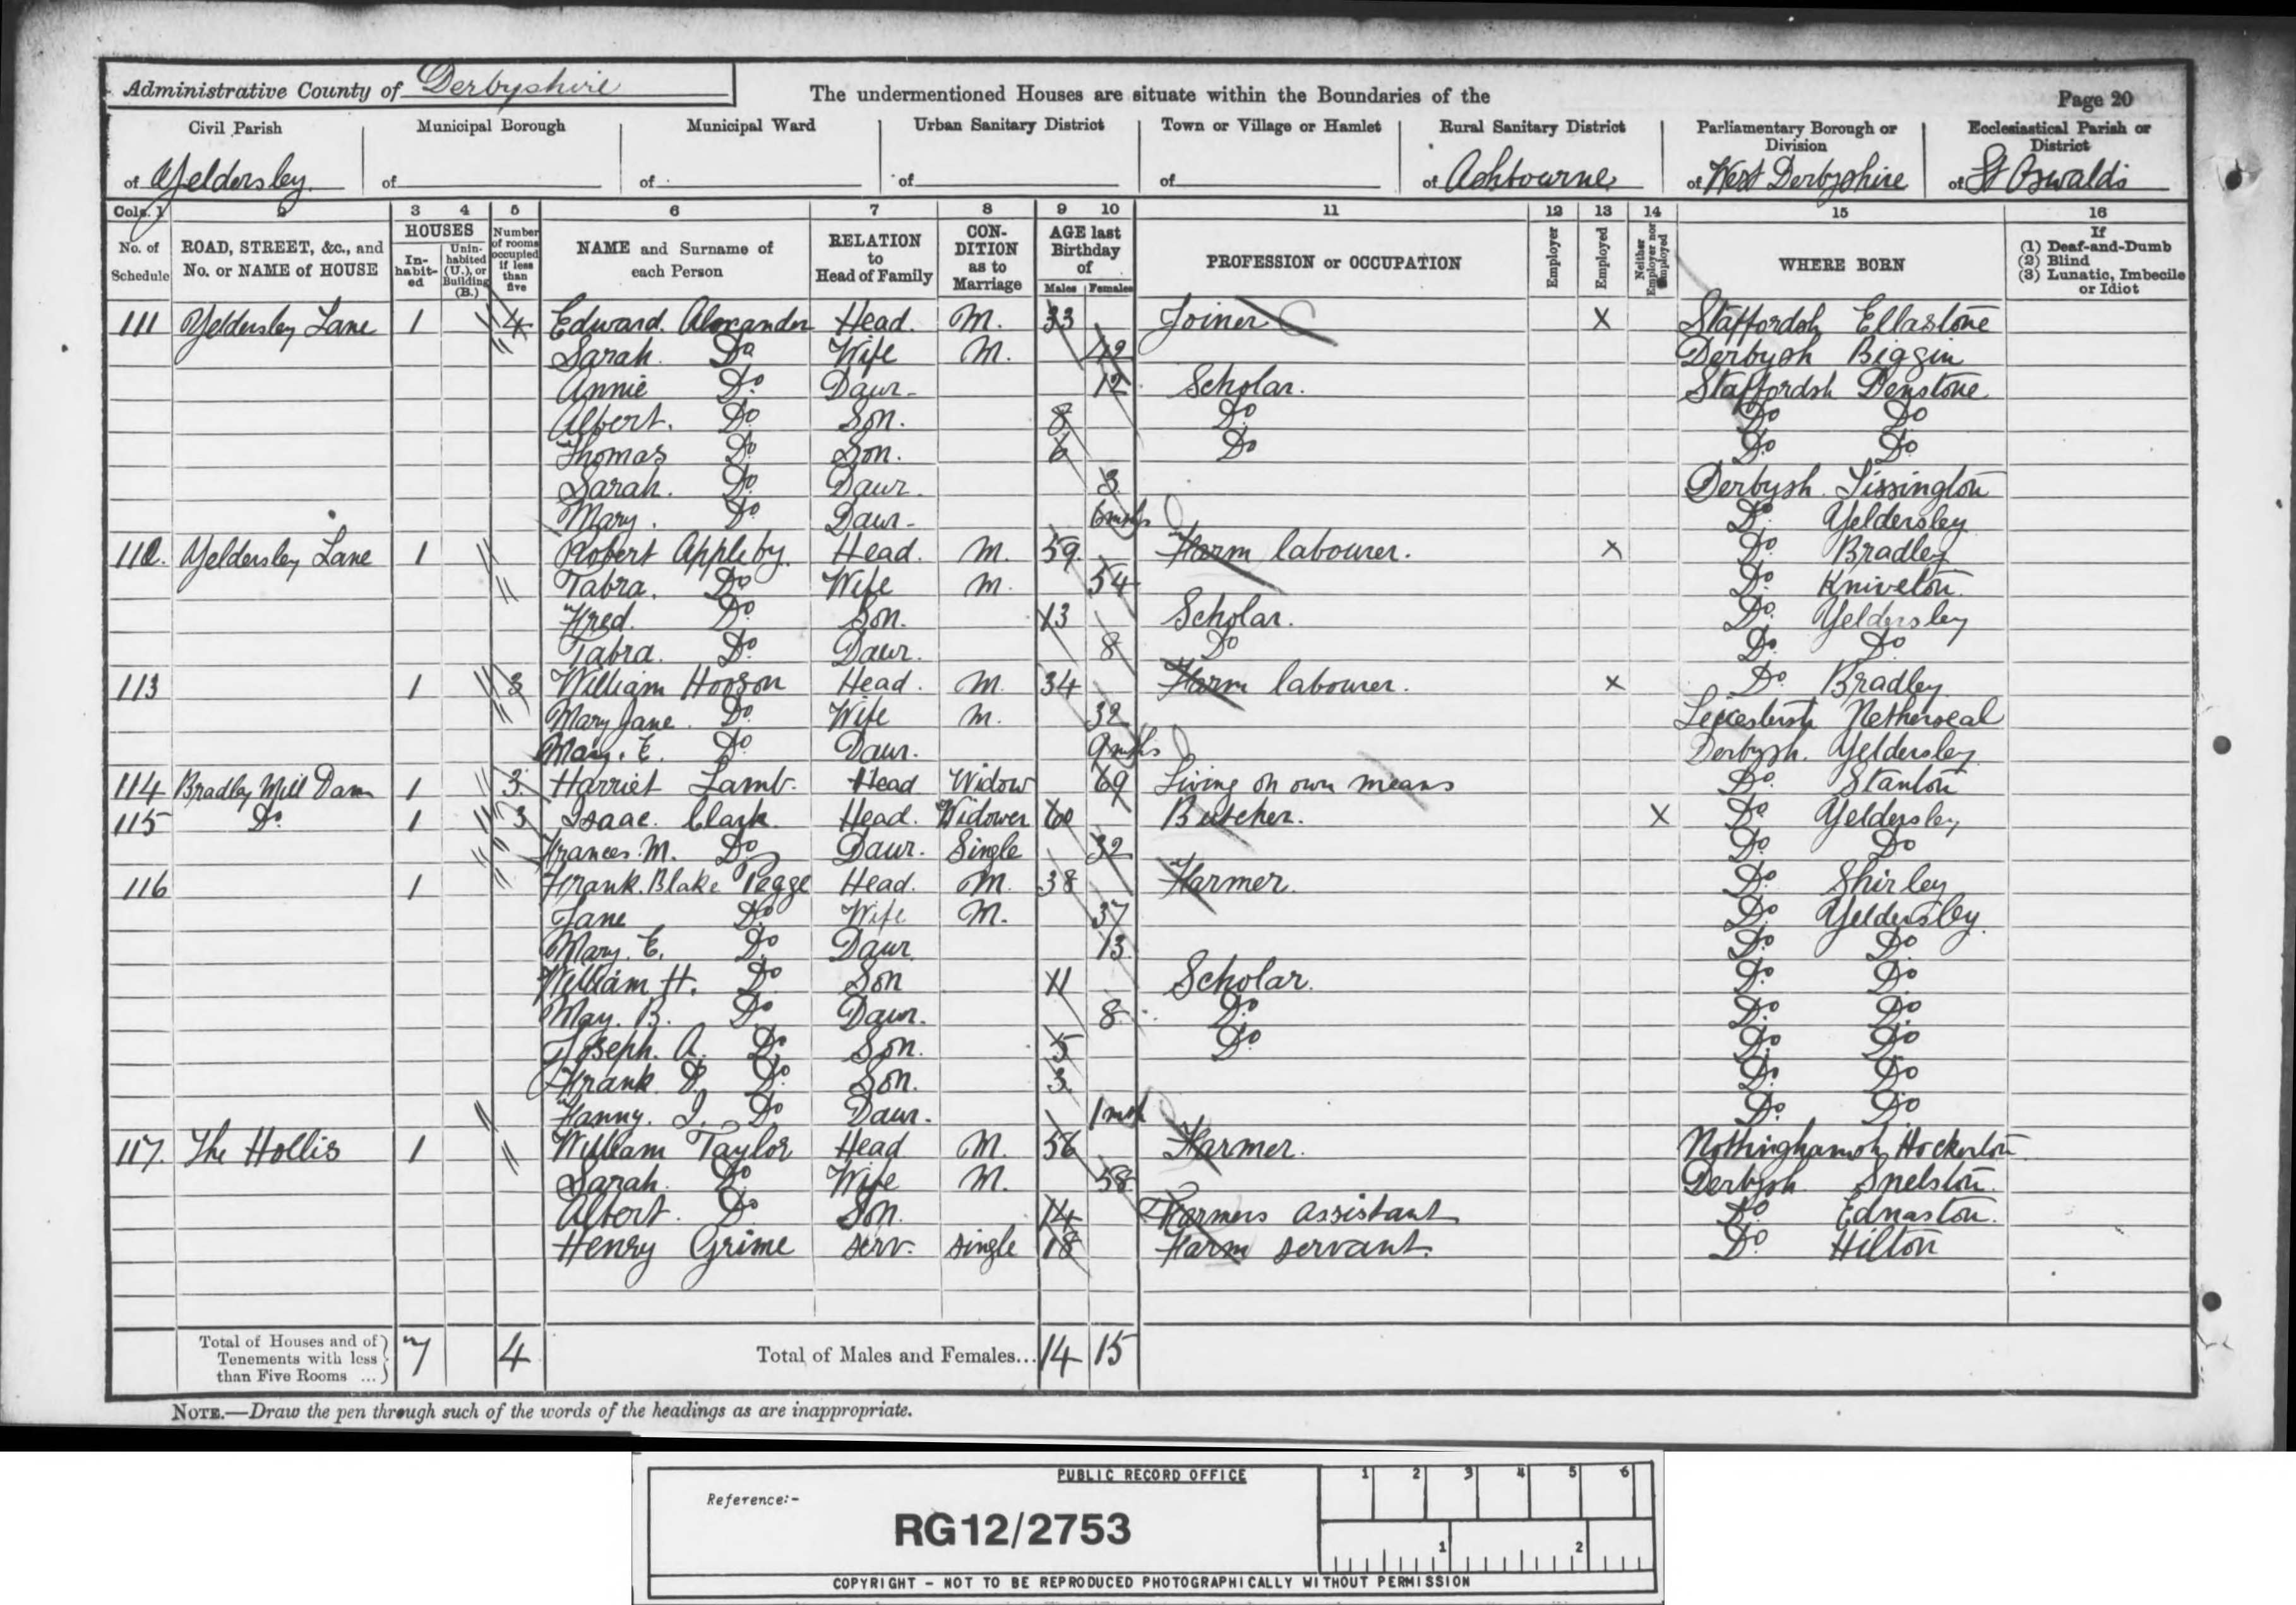 Administrative County of Derbyshire
The undermentioned Houses are situate within the Boundaries of the
Page 20
Civil Parish of Yeldersley
Municipal Borough of
Municipal Ward of
Urban Sanitary District of
Town or Village or Hamlet of
Rural Sanitary District of Ashbourne
Parliamentary Borough or Division of West Derbyshire
Ecclesiastical Parish or District of St Oswalds
Cols. 1 2 3 4 5 6 7 8 9 10 11 12 13 14 15 16
No. of Schedule
ROAD, STREET, &c., and No. or NAME of HOUSE
HOUSES
In-habit-ed
Unin-habited (U.), or Building (B.)
Number of rooms occupied if less than five
NAME and Surname of each Person
RELATION to Head of Family
CON-DITION as to Marriage
AGE last Birthday of
Males Females
PROFESSION or OCCUPATION
Employer
Employed
Neither Employer nor Employed
WHERE BORN
If (1) Deaf-and-Dumb (2) Blind (3) Lunatic, Imbecile or Idiot
111 Yeldersley Lane 1 4 Edward Alexander Head. M. 33 Joiner X Staffordsh Ellastone
Sarah Do Wife M. 42 Derbysh Biggin
Annie Do Daur. 12 Scholar. Staffordsh Denstone
Albert. Do Son. 8 Do Do Do
Thomas Do Son. 6 Do Do Do
Sarah. Do Daur. 3 Derbysh Tissington
Mary. Do Daur. 6 mths Do Yeldersley
112. Yeldersley Lane 1 Robert Appleby. Head. M. 59 Farm labourer. X Do Bradley
Tabra. Do Wife M. 54 Do Kniveton
Fred. Do Son. 13 Scholar. Do Yeldersley
Tabra. Do Daur. 8 Do Do Do
113 1 3 William Hobson Head. M. 34 Farm labourer. X Do Bradley
Mary Jane Do Wife M. 32 Leicestersh Netherseal
Mary. E. Do Daur. 9 mths Derbysh. Yeldersley
114 Bradley Mill Dam 1 3 Harriet Lamb. Head Widow 69 Living on own means Do Stanton
115 Do 1 3 Isaac Clark. Head. Widower 60 Butcher. X Do Yeldersley
Frances. M. Do Daur. Single 32 Do Do
116 1 Frank. Blake Pegge Head. M. 38 Farmer. Do Shirley
Jane Do Wife M. 37 Do Yeldersley
Mary. E. Do Daur. 13 Do Do
William H. Do Son 11 Scholar. Do Do
May. B. Do Daur. 8 Do Do Do
Joseph. A. Do Son. 5 Do Do Do
Frank Do Son. 3 Do Do
Fanny. I. Do Daur. 1 mth Do Do
117. The Hollis 1 William Taylor Head M. 56 Farmer. Nottinghamsh Hockerton
Sarah. Do Wife M. 58 Derbysh Snelston
Albert. Do Son. 14 Farmers assistant Do Ednaston.
Henry Grime serv. single 18 Farm servant. Do Hilton
Total of Houses and of Tenements with less than Five Rooms ... 7 4 Total of Males and Females... 14 15
NOTE.—Draw the pen through such of the words of the headings as are inappropriate.
PUBLIC RECORD OFFICE
1 2 3 4 5 6
Reference:-
RG12/2753
1 2
COPYRIGHT - NOT TO BE REPRODUCED PHOTOGRAPHICALLY WITHOUT PERMISSION